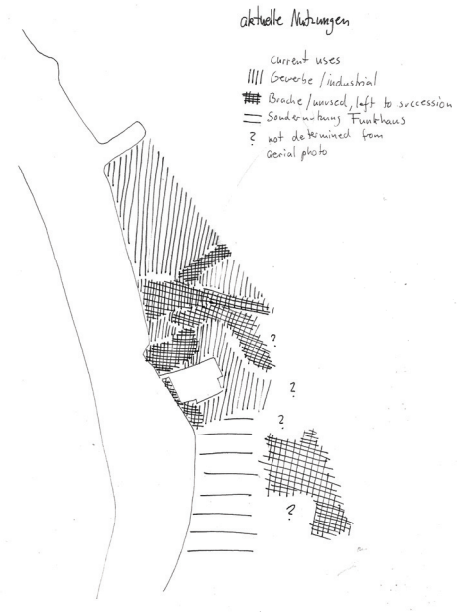 aktuelle Nutzungen
current uses
Gewerbe/industrial
Brache/unused, left to succession
Sondernutzung Funkhaus
? not determined from
aerial photo
?
?
?
?